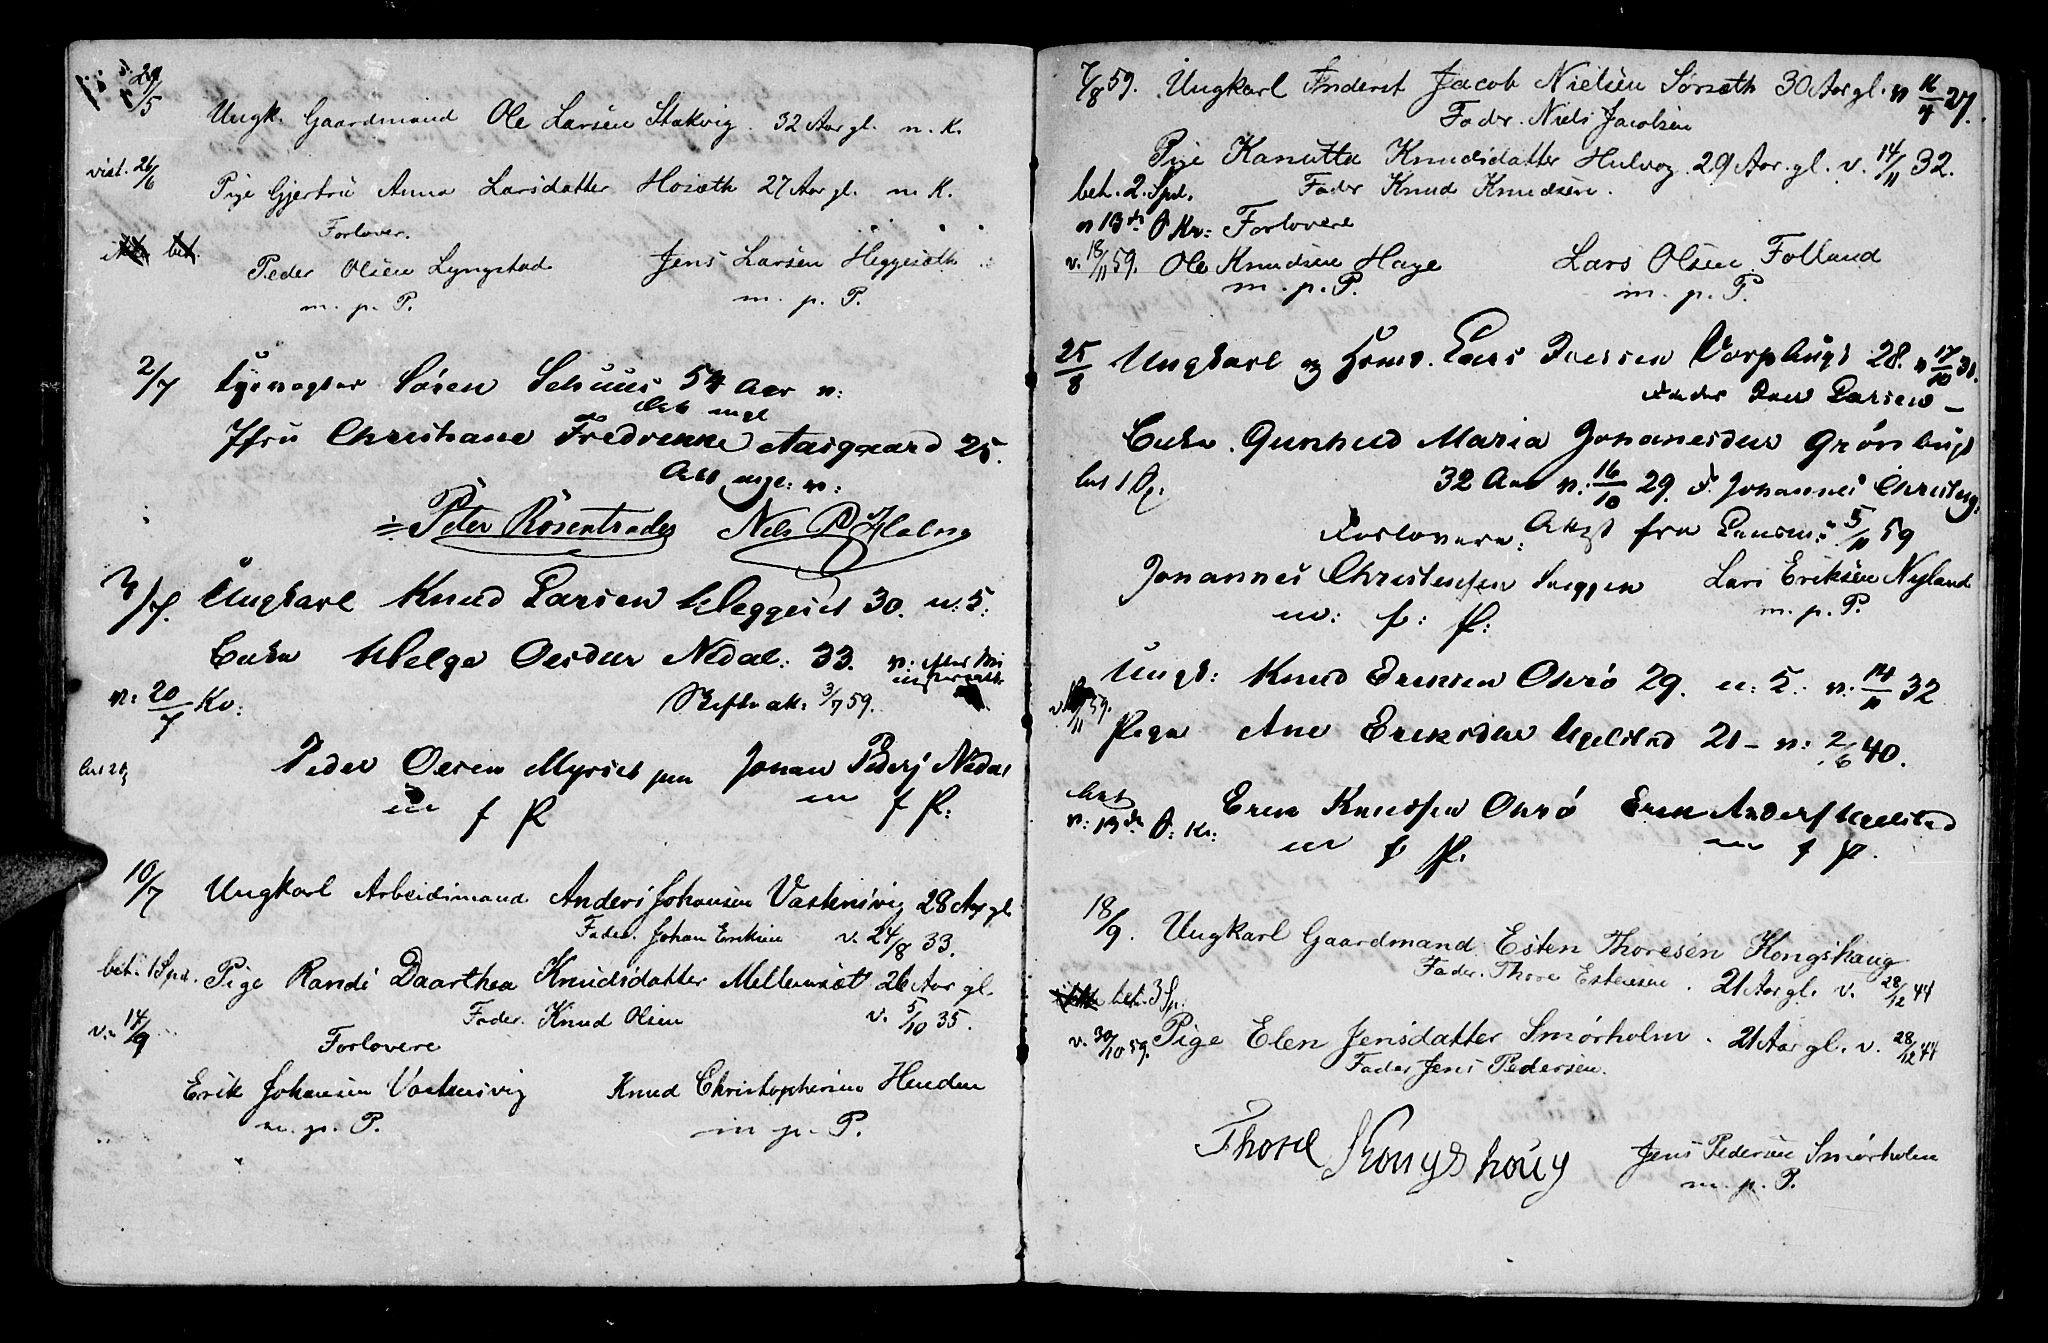 29/5
Ungk. Gaardmand Ole Larsen Stakvig. 32 Aar gl. n. K.
vist. 26/6
Pige Gjertru Anna Larsdatter Hosæth 27 Aar gl. n. K.
Forlover.
bet.
Peder Olsen Lyngstad Jens Larsen Heggesæth
m. p. P. m. p. P.
2/7 Søren Schuus 54 Aar v:
Jfru Christiane Fredrikke Aasgaard 25.
Att v:
Peter Rosentræder Nels P Holmø
3/7. Ungkarl Knud Larsen Heggeset 30. u: 5:
Enke Helge Olsdtr Nedal: 33.
v: 20/7 Kv: 3/7 59.
Peder Olsen Myrset Johan Peders Nedal
m p P m p P:
10/7 Ungkarl Arbeidsmand Anders Johansen Vastensvig 28 Aar gl.
Fader. Johan Eriksen v. 24/8 33.
bet. 1 Spd. Pige Randi Daarthea Knudsdatter Mellemsæt 26 Aar gl.
Fader. Knud Olsen v. 5/10 35.
v. 14/9
Forlovere
Erik Johansen Vastensvig Knud Christophersen Henden
m. p. P. m p. P.
7/8 59. Ungkarl Inderst Jacob Nielsen Sørsæth 30 Aar gl. v 27.
Fader. Niels Jacobsen
Pige Kanutta Knudsdatter Hulvog 29 Aar. gl. v. 14/11 32.
bet. 2. Spd. Fader Knud Knudsen.
v 13de Ø Kv: Forlovere
v. 18/11 59. Ole Knudsen Hage Lars Olsen Folland
m. p. P. m. p. P.
25/8 Ungkarl og Lars Iversen Vorphugt 28. v 17/10 31.
Fader Iver Larsen
Enke. Gunhild Maria Johanesdtr Grønhugt
32 Aar v: 16/10 29. F. Johannes
Forlovere: Attest fra 5/11 59
Johannes Christensen Lars Eriksen Nyland
m: p: P: m. p. P.
Ungk: Knud Eriksen Ohrø 29. u: 5: v: 14/11 32
Pige Ane Eriksdtr Ugelstad 21 – v: 2/6 40.
v: 13de Ø: Kv: Erik Knudsen Ohrø Erik Anders Ugelstad
m p P. m p P.
18/9. Ungkarl Gaardmand Esten Thoresen Kongshaug
Fader. Thore Estensen. 21 Aar gl. v. 28/12 44
bet. 3 Sp:
v. 30/10 59. Pige Elen Jensdatter Smørholm. 21 Aar gl. v. 28/12 44
Fader Jens Pedersen.
Thore Kongshoug Jens Pedersen Smørholm
m. p. P.